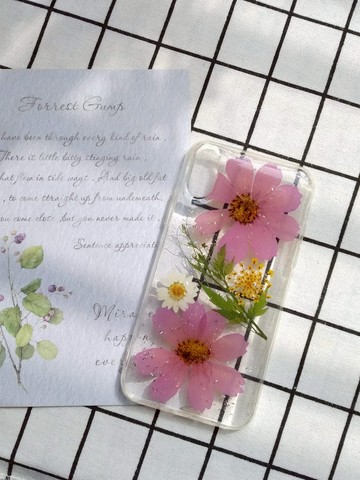 Forrest Gump
have been through every kind of rain.
There is little bitty stinging rain,
hat flew in side ways. And big old fat
, to come straight up from underneath.
ou come close, but you never made it.
Sentence appreciate
Mira
happ
eve